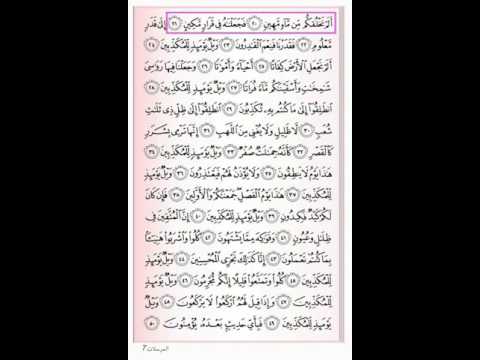 أَلَمْ نَخْلُقكُّم مِّن مَّآءٍ مَّهِينٍ ٢٠ فَجَعَلْنَٰهُ فِى قَرَارٍ مَّكِينٍ ٢١ إِلَىٰ قَدَرٍ
مَّعْلُومٍ ٢٢ فَقَدَرْنَا فَنِعْمَ ٱلْقَٰدِرُونَ ٢٣ وَيْلٌ يَوْمَئِذٍ لِّلْمُكَذِّبِينَ ٢٤
أَلَمْ نَجْعَلِ ٱلْأَرْضَ كِفَاتًا ٢٥ أَحْيَآءً وَأَمْوَٰتًا ٢٦ وَجَعَلْنَا فِيهَا رَوَٰسِىَ
شَٰمِخَٰتٍ وَأَسْقَيْنَٰكُم مَّآءً فُرَاتًا ٢٧ وَيْلٌ يَوْمَئِذٍ لِّلْمُكَذِّبِينَ ٢٨
ٱنطَلِقُوٓا۟ إِلَىٰ مَا كُنتُم بِهِۦ تُكَذِّبُونَ ٢٩ ٱنطَلِقُوٓا۟ إِلَىٰ ظِلٍّ ذِى ثَلَٰثِ
شُعَبٍ ٣٠ لَّا ظَلِيلٍ وَلَا يُغْنِى مِنَ ٱللَّهَبِ ٣١ إِنَّهَا تَرْمِى بِشَرَرٍ
كَٱلْقَصْرِ ٣٢ كَأَنَّهُۥ جِمَٰلَتٌ صُفْرٌ ٣٣ وَيْلٌ يَوْمَئِذٍ لِّلْمُكَذِّبِينَ ٣٤
هَٰذَا يَوْمُ لَا يَنطِقُونَ ٣٥ وَلَا يُؤْذَنُ لَهُمْ فَيَعْتَذِرُونَ ٣٦ وَيْلٌ يَوْمَئِذٍ
لِّلْمُكَذِّبِينَ ٣٧ هَٰذَا يَوْمُ ٱلْفَصْلِ جَمَعْنَٰكُمْ وَٱلْأَوَّلِينَ ٣٨ فَإِن كَانَ
لَكُمْ كَيْدٌ فَكِيدُونِ ٣٩ وَيْلٌ يَوْمَئِذٍ لِّلْمُكَذِّبِينَ ٤٠ إِنَّ ٱلْمُتَّقِينَ فِى
ظِلَٰلٍ وَعُيُونٍ ٤١ وَفَوَٰكِهَ مِمَّا يَشْتَهُونَ ٤٢ كُلُوا۟ وَٱشْرَبُوا۟ هَنِيٓـًٔۢا
بِمَا كُنتُمْ تَعْمَلُونَ ٤٣ إِنَّا كَذَٰلِكَ نَجْزِى ٱلْمُحْسِنِينَ ٤٤ وَيْلٌ يَوْمَئِذٍ
لِّلْمُكَذِّبِينَ ٤٥ كُلُوا۟ وَتَمَتَّعُوا۟ قَلِيلًا إِنَّكُم مُّجْرِمُونَ ٤٦ وَيْلٌ يَوْمَئِذٍ
لِّلْمُكَذِّبِينَ ٤٧ وَإِذَا قِيلَ لَهُمُ ٱرْكَعُوا۟ لَا يَرْكَعُونَ ٤٨ وَيْلٌ
يَوْمَئِذٍ لِّلْمُكَذِّبِينَ ٤٩ فَبِأَىِّ حَدِيثٍۭ بَعْدَهُۥ يُؤْمِنُونَ ٥٠
المرسلات 7